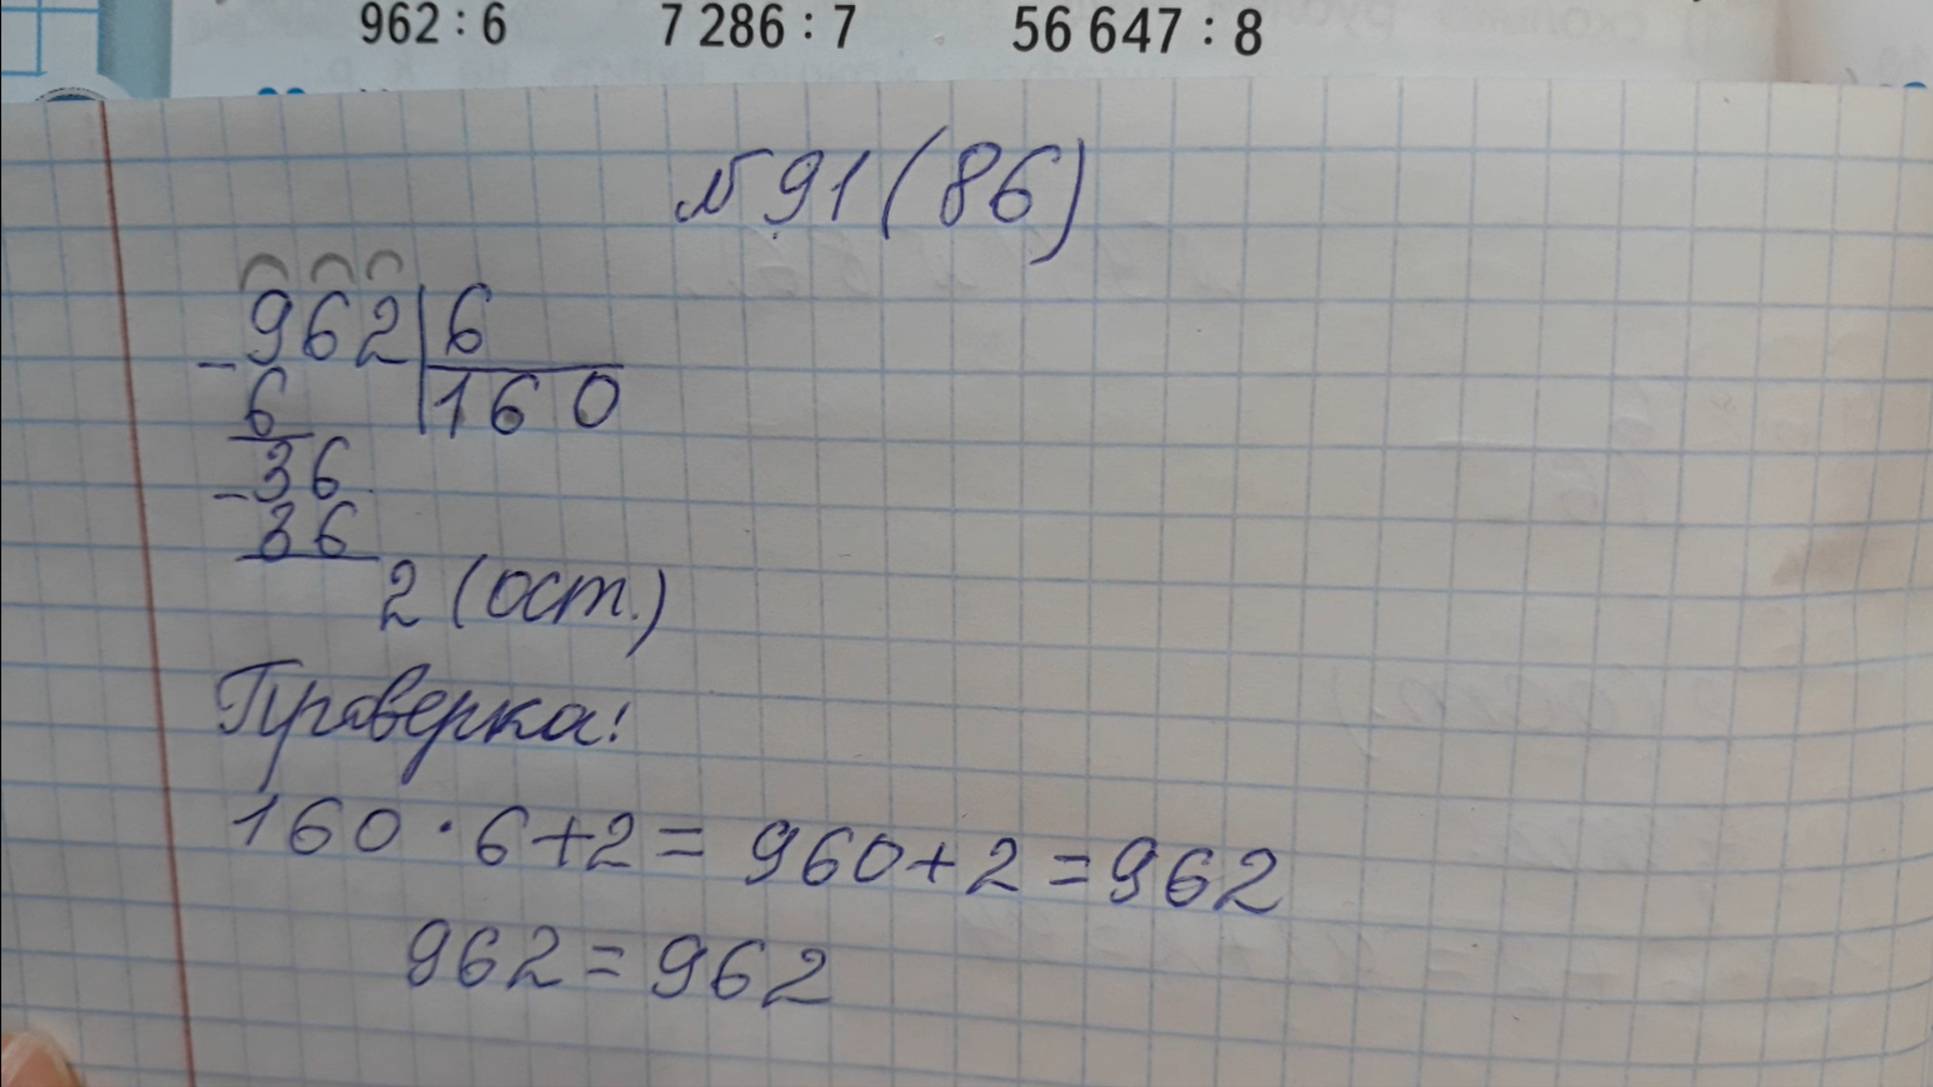 962 : 6 7 286 : 7 56 647 : 8
№ 91 (86)
962 | 6
- 6 | 160
36
- 36
2 (ост.)
Проверка:
160 · 6 + 2 = 960 + 2 = 962
962 = 962